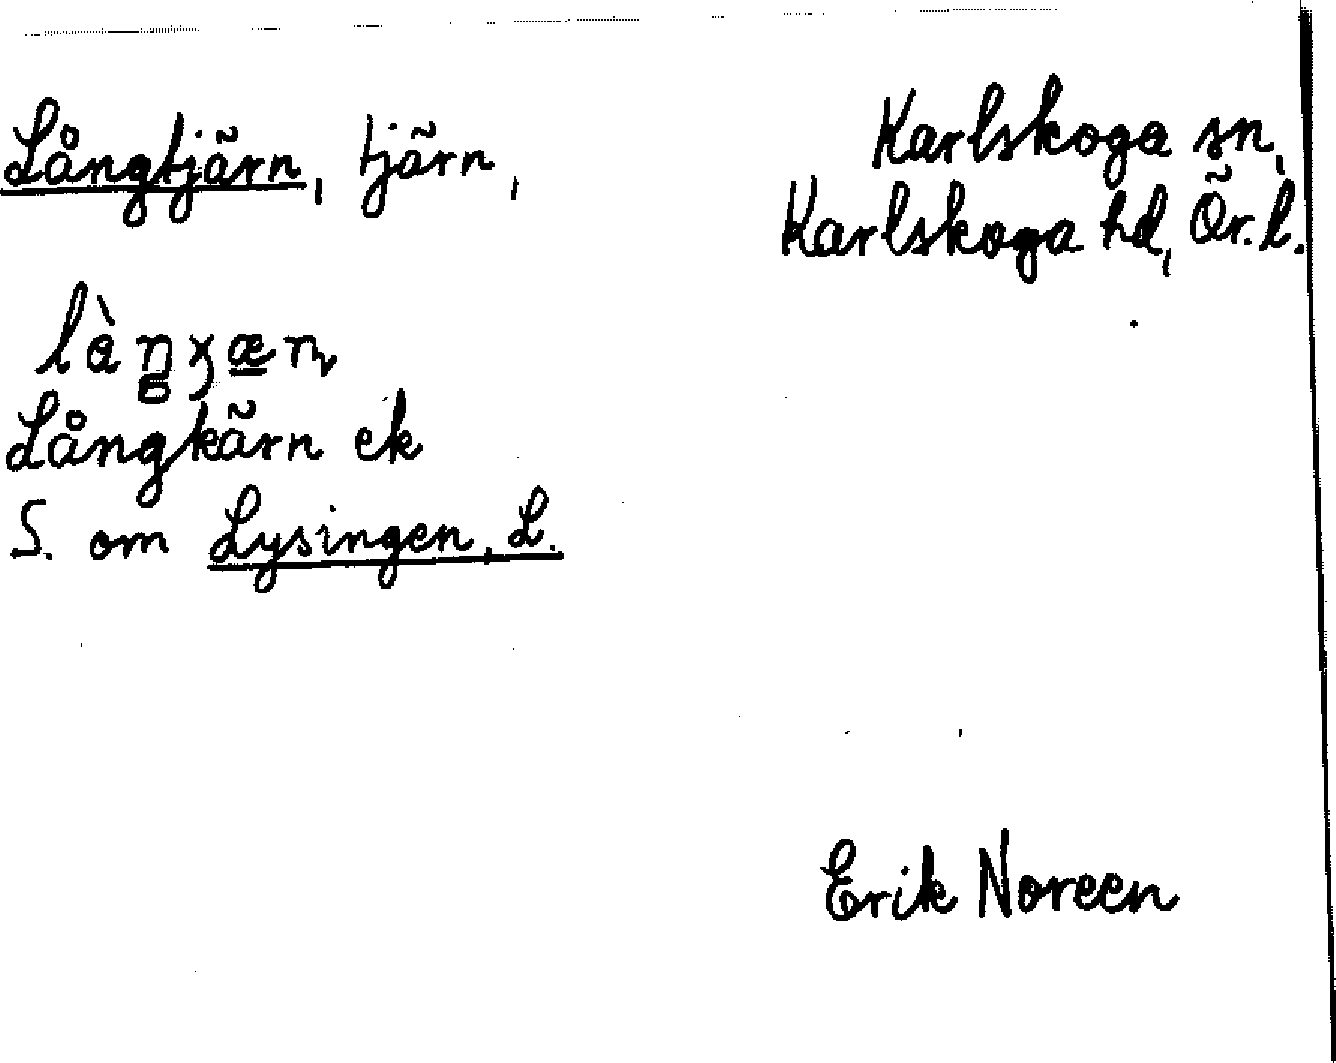 Långtjärn, tjärn,
Karlskoga sn,
Karlskoga hd, Ör. l.
Långkärn ek
S. om Lysingen, L.
Erik Noreen